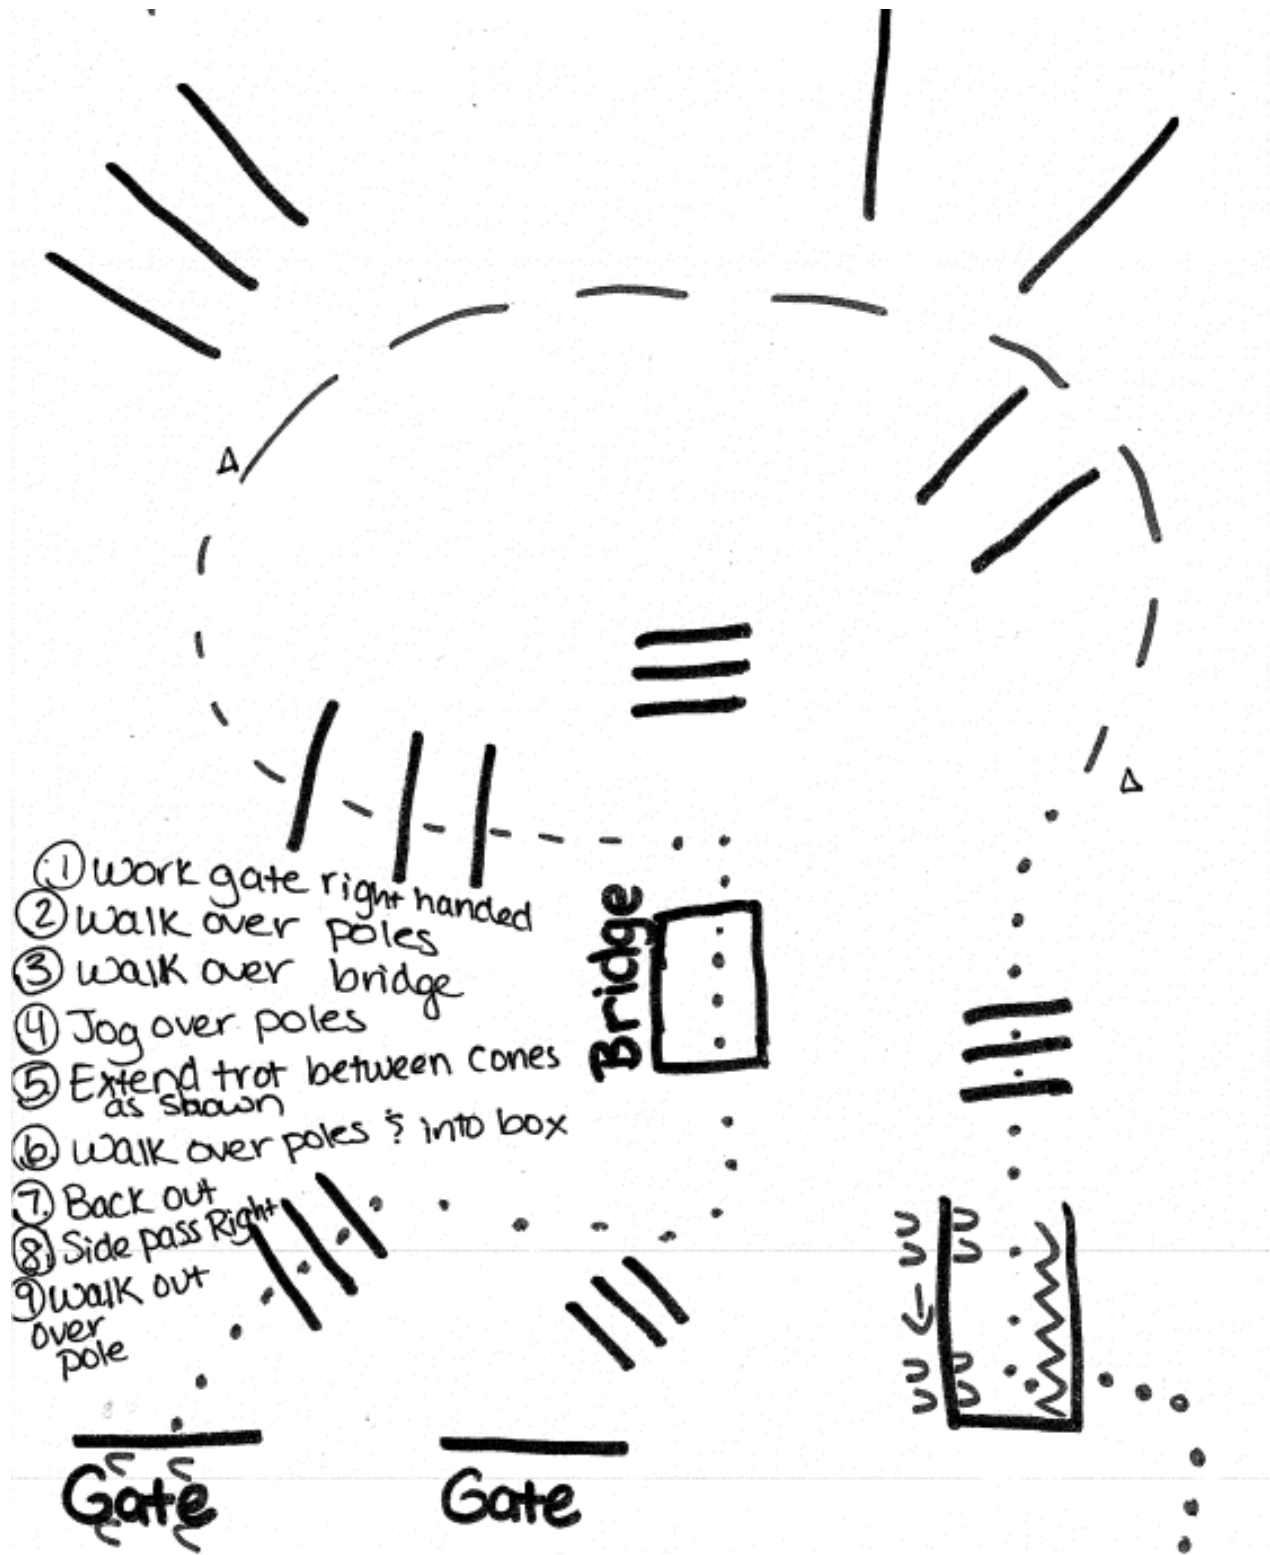 ① Work gate right handed
② Walk over poles
③ Walk over bridge
④ Jog over poles
⑤ Extend trot between cones
as shown
⑥ Walk over poles & into box
⑦ Back out
⑧ Side pass Right
⑨ Walk out
over
pole
Bridge
Gate
Gate